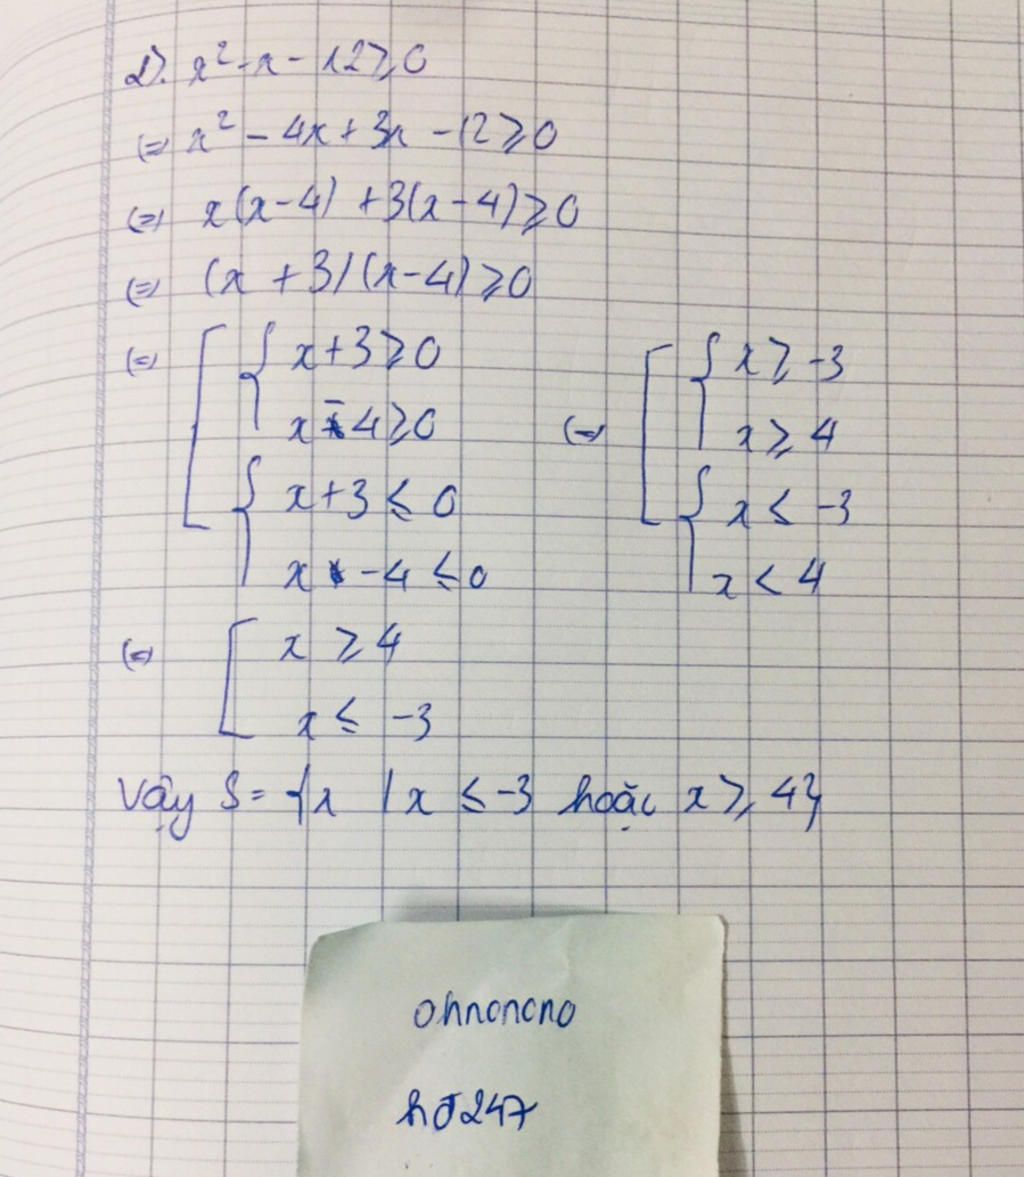 d). x² - x - 12 ≥ 0
(=) x² - 4x + 3x - 12 ≥ 0
(=) x(x-4) + 3(x-4) ≥ 0
(=) (x + 3)(x-4) ≥ 0
(=) [ { x+3 ≥ 0 (=) [ { x ≥ -3
x - 4 ≥ 0 x ≥ 4
{ x+3 ≤ 0 { x ≤ -3
x - 4 ≤ 0 x < 4
(=) [ x ≥ 4
x ≤ -3
Vậy S = {x | x ≤ -3 hoặc x ≥ 4}
ohnonono
hđ247